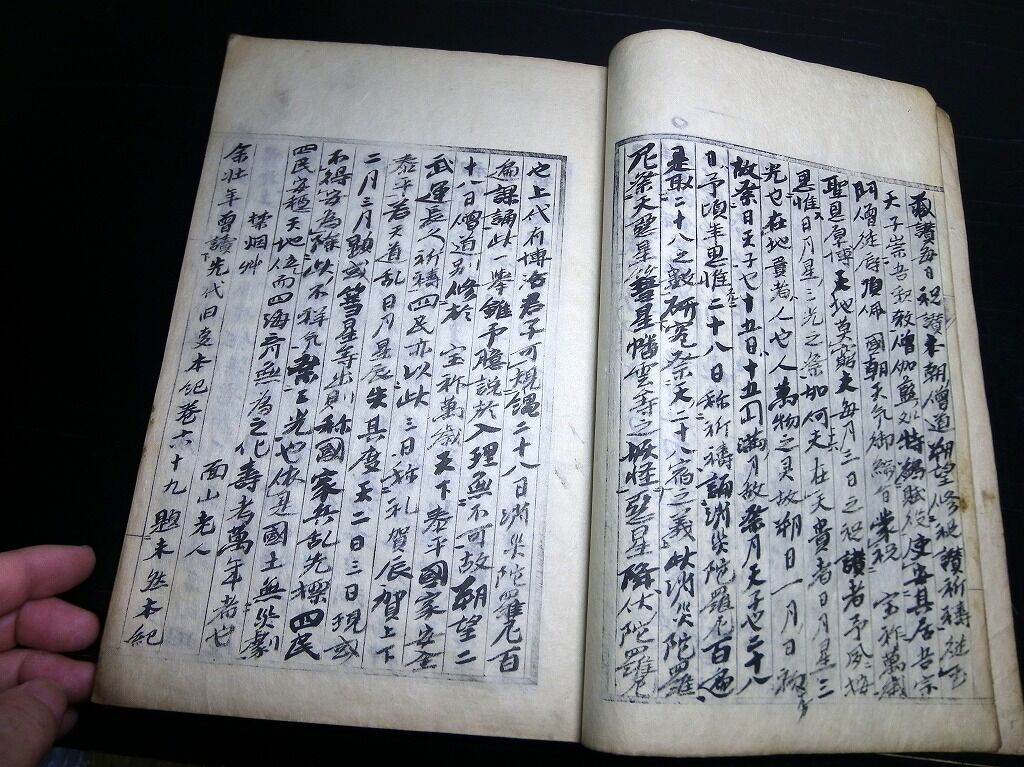 敢讃毎日祝讃本朝僧道朔望修祝讃祈禱
天子崇吾和敕僧伽藍特賜賦役度安其居吾宗
門僧徒府頂佩國朝天気御綸旨業祝宝祚萬歳
聖恩厚博天地莫窮夫毎月三日之祝讃者予夙
思惟日月星三光之祭如何夫在天貴者日月星三
光也在地貴者人也人萬物之灵故朔日一月日祢
故祭日天子也十五日十五円満月故祭月天子也二十八
日予頃年思惟二十八日称祈禱誦消災陀羅尼百遍
是取二十八之數研究祭天二十八宿之義以消災陀羅
尼祭天 星彗星幡雲等之妖怪惡星降伏陀羅尼
也上代有博洽君子可規縄二十八日消災陀羅尼百
遍課誦此一挙雖予臆説於入理無不可故朔望二
十八日僧道別修於宝祚萬歳天下泰平國家安全
武運長久祈禱四民亦以此三日称礼賀辰賀上下
泰平若天道乱日月星辰失其度天二日三日現或
二月三月顕或彗星等出則称國家兵乱先標四民
不得安為除以不祥気祭三光也依是國土無災劇
四民安穏天地位而四海斉無為之化壽考萬年者也
禁烟艸 面山老人
余壮年曽讀先代旧事本紀巻六十九題未然本紀